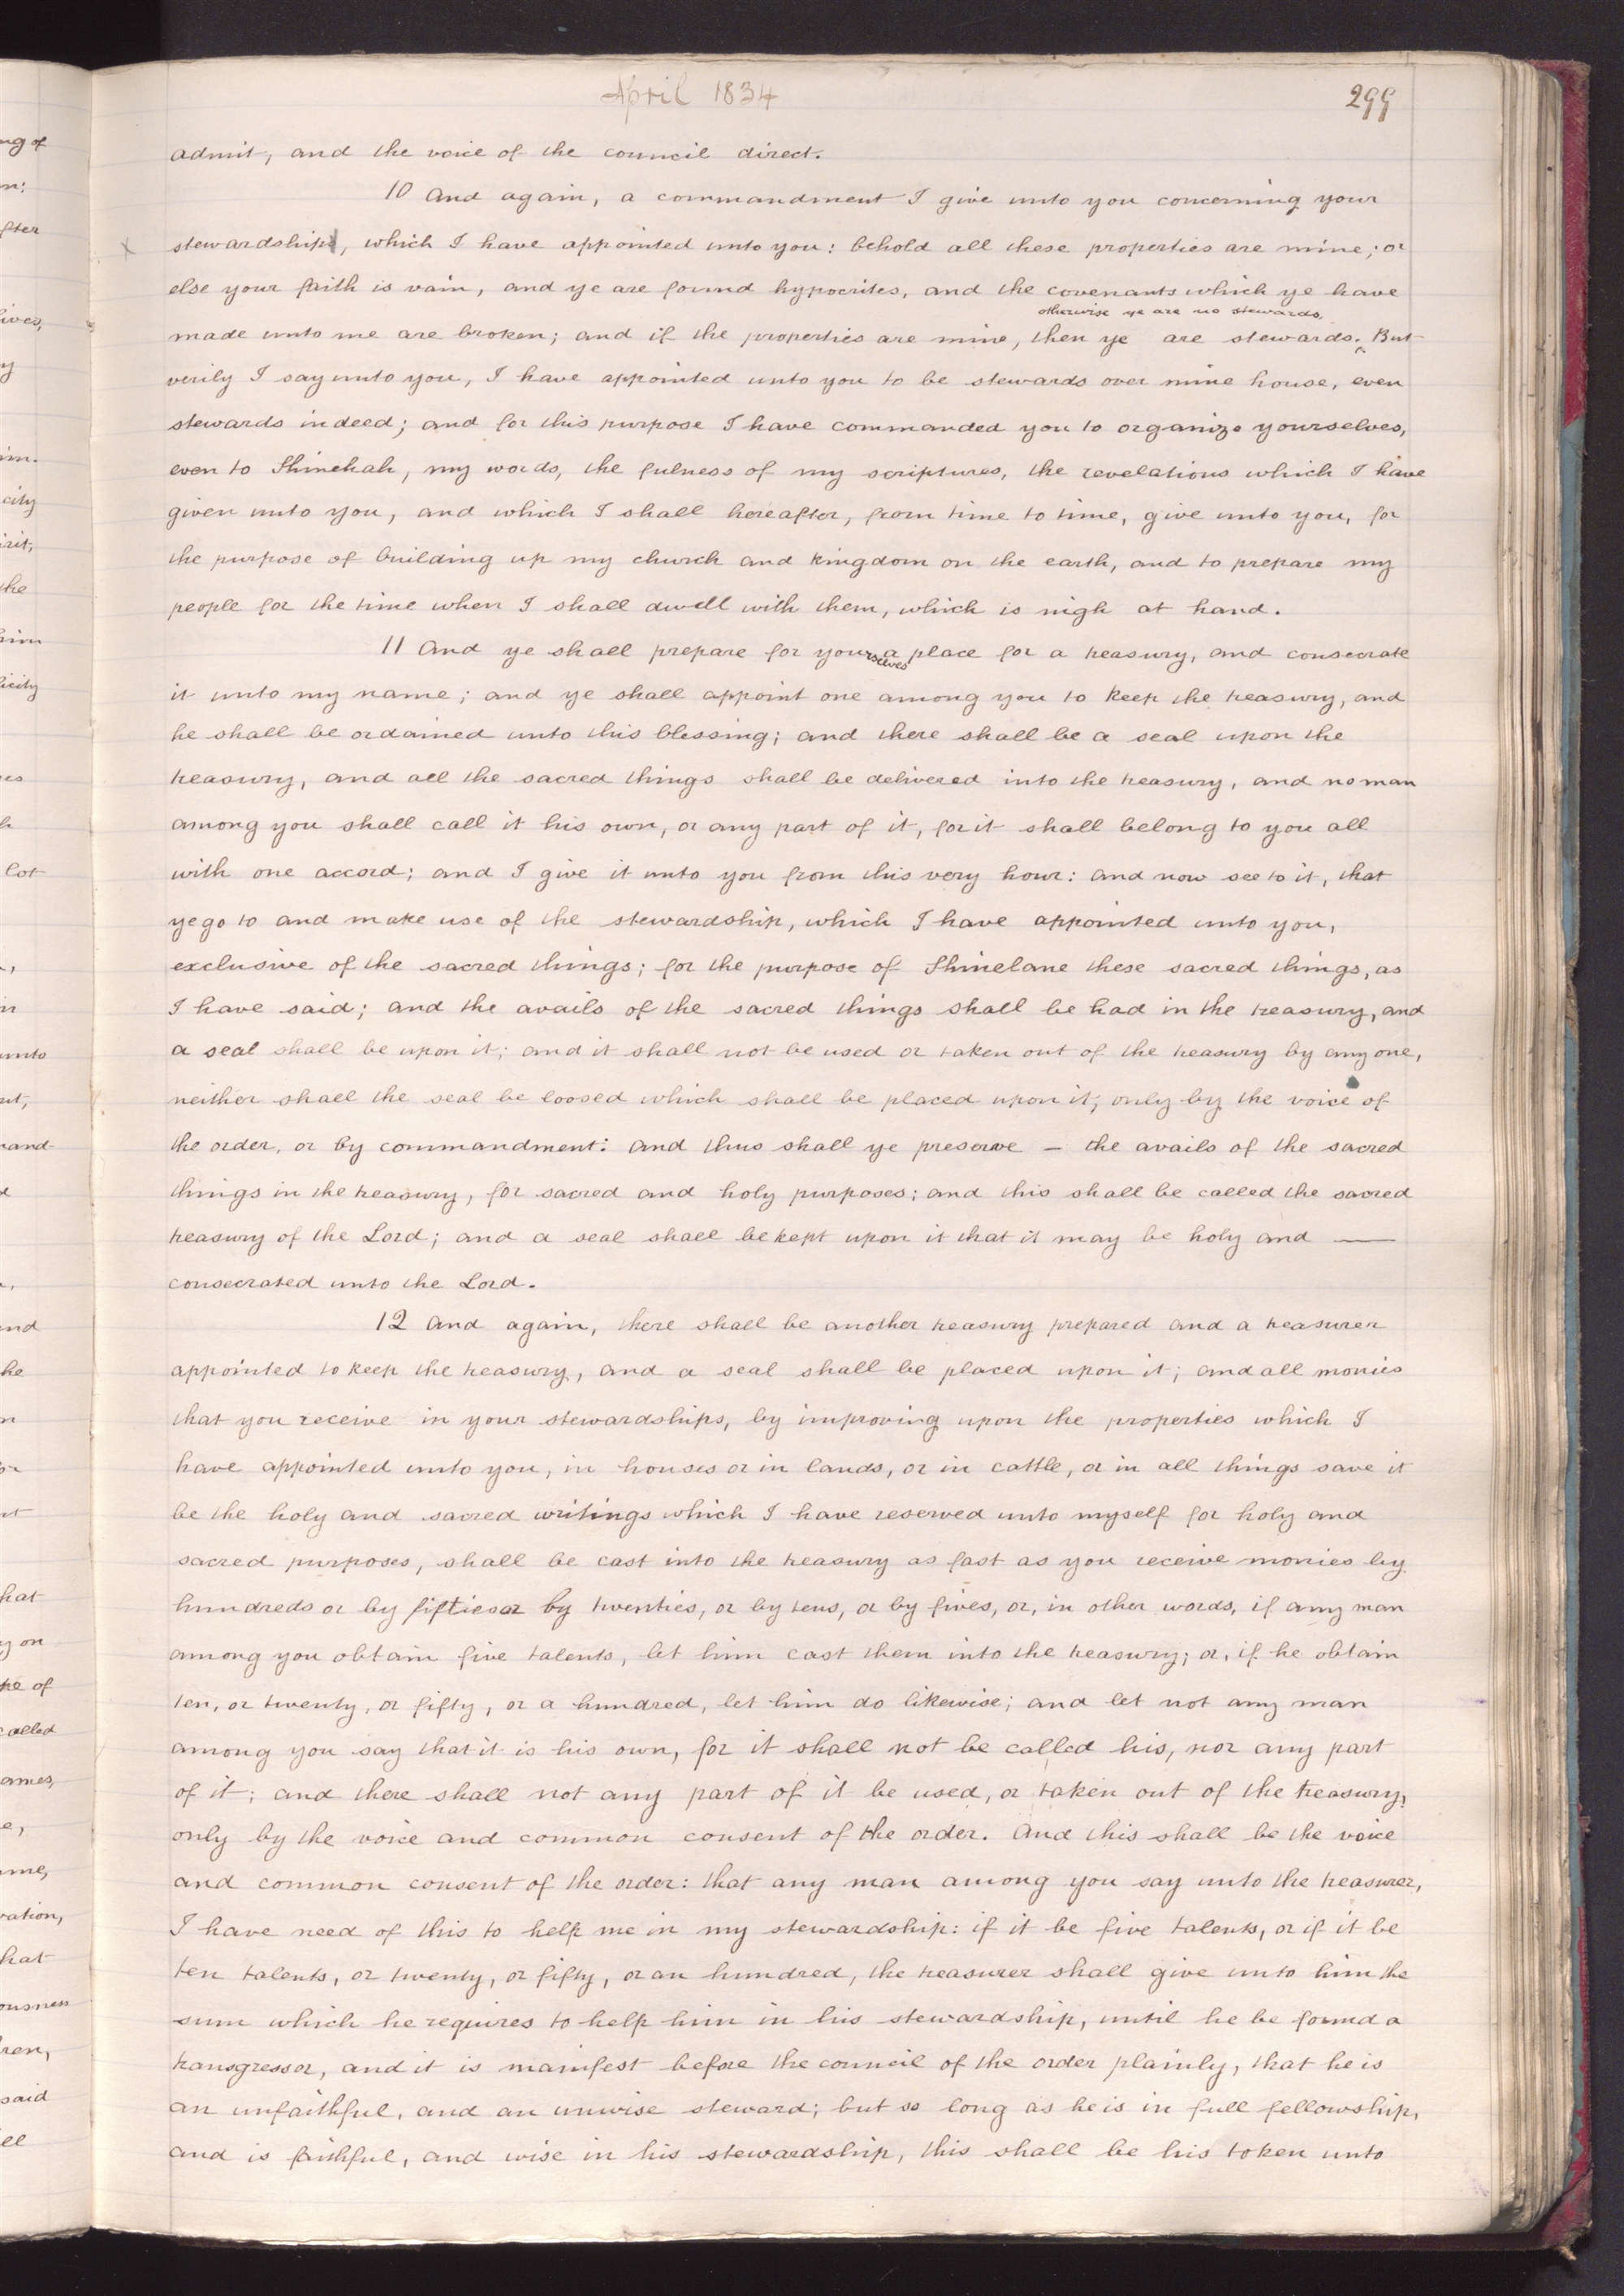 April 1834
299
admit, and the voice of the council direct.
10 And again, a commandment I give unto you concerning your
x stewardship, which I have appointed unto you: behold all these properties are mine; or
else your faith is vain, and ye are found hypocrites, and the covenants which ye have
otherwise ye are no stewards.
made unto me are broken; and if the properties are mine, then ye are stewards.^ But
verily I say unto you, I have appointed unto you to be stewards over mine house, even
stewards indeed; and for this purpose I have commanded you to organize yourselves,
even to Shinehah, my words, the fulness of my scriptures, the revelations which I have
given unto you, and which I shall hereafter, from time to time, give unto you, for
the purpose of building up my church and kingdom on the earth, and to prepare my
people for the time when I shall dwell with them, which is nigh at hand.
11 And ye shall prepare for yourselves a place for a treasury, and consecrate
it unto my name; and ye shall appoint one among you to keep the treasury, and
he shall be ordained unto this blessing; and there shall be a seal upon the
treasury, and all the sacred things shall be delivered into the treasury, and no man
among you shall call it his own, or any part of it, for it shall belong to you all
with one accord; and I give it unto you from this very hour: and now see to it, that
ye go to and make use of the stewardship, which I have appointed unto you,
exclusive of the sacred things; for the purpose of Shinelane these sacred things, as
I have said; and the avails of the sacred things shall be had in the treasury, and
a seal shall be upon it; and it shall not be used or taken out of the treasury by any one,
neither shall the seal be loosed which shall be placed upon it, only by the voice of
the order, or by commandment: And thus shall ye preserve — the avails of the sacred
things in the treasury, for sacred and holy purposes; and this shall be called the sacred
treasury of the Lord; and a seal shall be kept upon it that it may be holy and —
consecrated unto the Lord.
12 And again, there shall be another treasury prepared and a treasurer
appointed to keep the treasury, and a seal shall be placed upon it; and all monies
that you receive in your stewardships, by improving upon the properties which I
have appointed unto you, in houses or in lands, or in cattle, or in all things save it
be the holy and sacred writings which I have reserved unto myself for holy and
sacred purposes, shall be cast into the treasury as fast as you receive monies by
hundreds or by fifties or by twenties, or by tens, or by fives, or, in other words, if any man
among you obtain five talents, let him cast them into the treasury; or, if he obtain
ten, or twenty, or fifty, or a hundred, let him do likewise; and let not any man
among you say that it is his own, for it shall not be called his, nor any part
of it; and there shall not any part of it be used, or taken out of the treasury,
only by the voice and common consent of the order. And this shall be the voice
and common consent of the order: that any man among you say unto the treasurer,
I have need of this to help me in my stewardship: if it be five talents, or if it be
ten talents, or twenty, or fifty, or an hundred, the treasurer shall give unto him the
sum which he requires to help him in his stewardship, until he be found a
transgressor, and it is manifest before the council of the order plainly, that he is
an unfaithful, and an unwise steward; but so long as he is in full fellowship,
and is faithful, and wise in his stewardship, this shall be his token unto